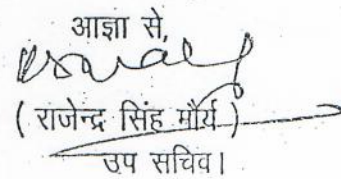 आज्ञा से,
( राजेन्द्र सिंह मौर्य )
उप सचिव।